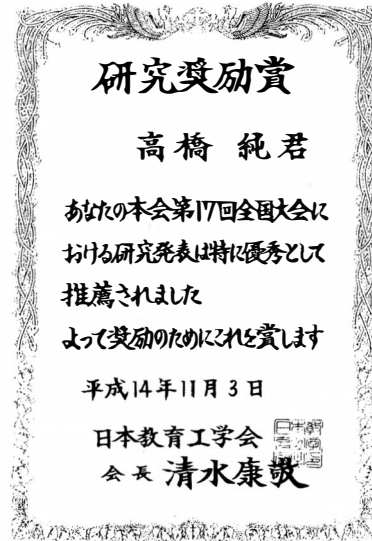 研究奨励賞
高橋 純君
あなたの本会第17回全国大会に
おける研究発表は特に優秀として
推薦されました
よって奨励のためにこれを賞します
平成14年11月3日
日本教育工学会
会長 清水康敬